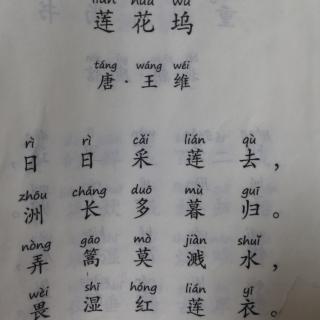 lián huā wù
莲花坞
táng wáng wéi
唐·王维
rì rì cǎi lián qù
日日采莲去，
zhōu cháng duō mù guī
洲长多暮归。
nòng gāo mò jiàn shuǐ
弄篙莫溅水，
wèi shī hóng lián yī
畏湿红莲衣。